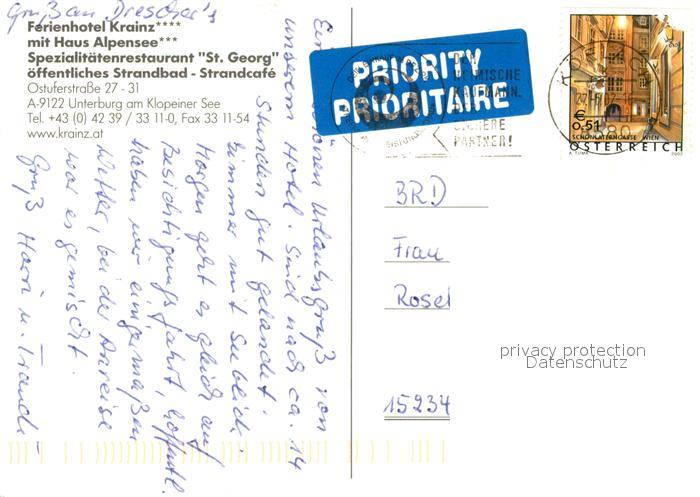 Gruß an Drescher's
Ferienhotel Krainz****
mit Haus Alpensee***
Spezialitätenrestaurant "St. Georg"
öffentliches Strandbad - Strandcafé
Ostuferstraße 27 - 31
A-9122 Unterburg am Klopeiner See
Tel. +43 (0) 42 39 / 33 11-0, Fax 33 11-54
www.krainz.at
Einen schönen Urlaubsgruß von
unserem Hotel. Sind nach ca. 14
Stunden gut gelandet.
Zimmer mit Seeblick.
Morgen geht es gleich auf
Besichtigungsfahrt, hoffentl.
haben wir einigermaßen
Wetter, bei der Anreise
war es gemischt.
Gruß Harri u. Traudl
PRIORITY
PRIORITAIRE
DER
HEIMISCHE
KAUFMANN,
SICHERE
PARTNER!
€
0,51
SCHÖNLATERNGASSE, WIEN
ÖSTERREICH
A. TUMA
2002
BRD
Frau
Rosel
privacy protection
Datenschutz
15234